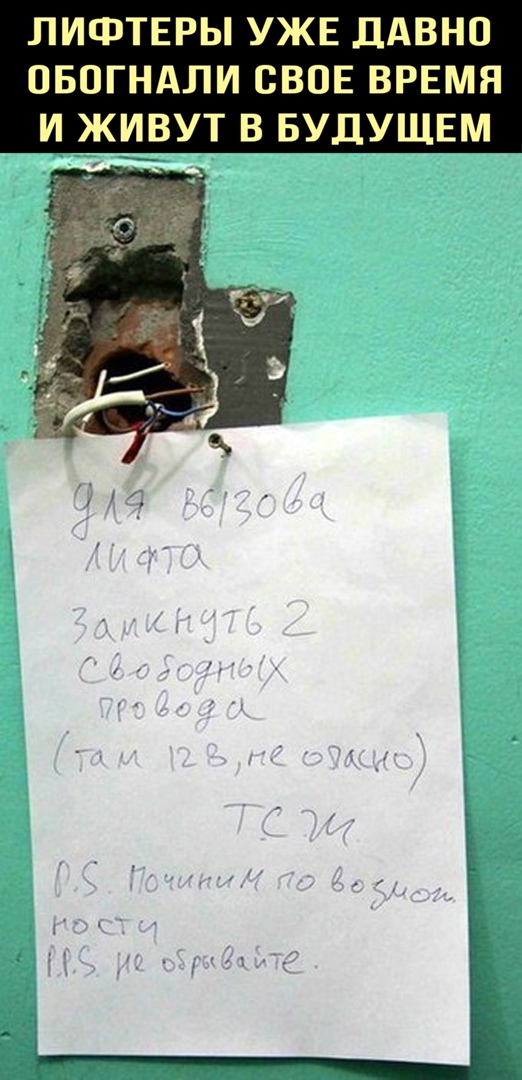 ЛИФТЕРЫ УЖЕ ДАВНО
ОБОГНАЛИ СВОЕ ВРЕМЯ
И ЖИВУТ В БУДУЩЕМ
Для вызова
лифта
Замкнуть 2
свободных
провода
(там 12 В, не опасно)
ТСЖ
P.S. Починим по возмож
ности
P.P.S. не обрывайте.